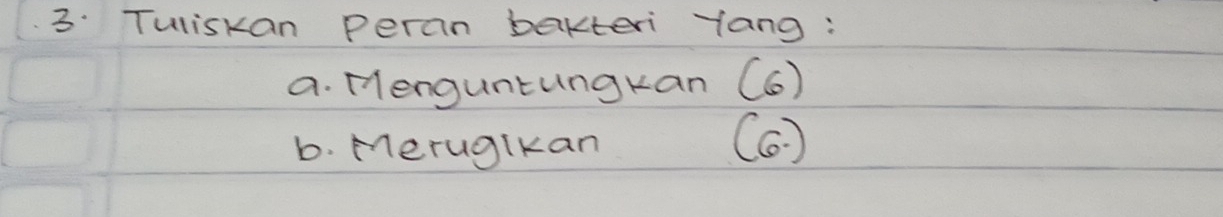 3. Tuliskan Peran bakteri Yang :
a. Menguntungkan (6)
b. Merugikan (6.)